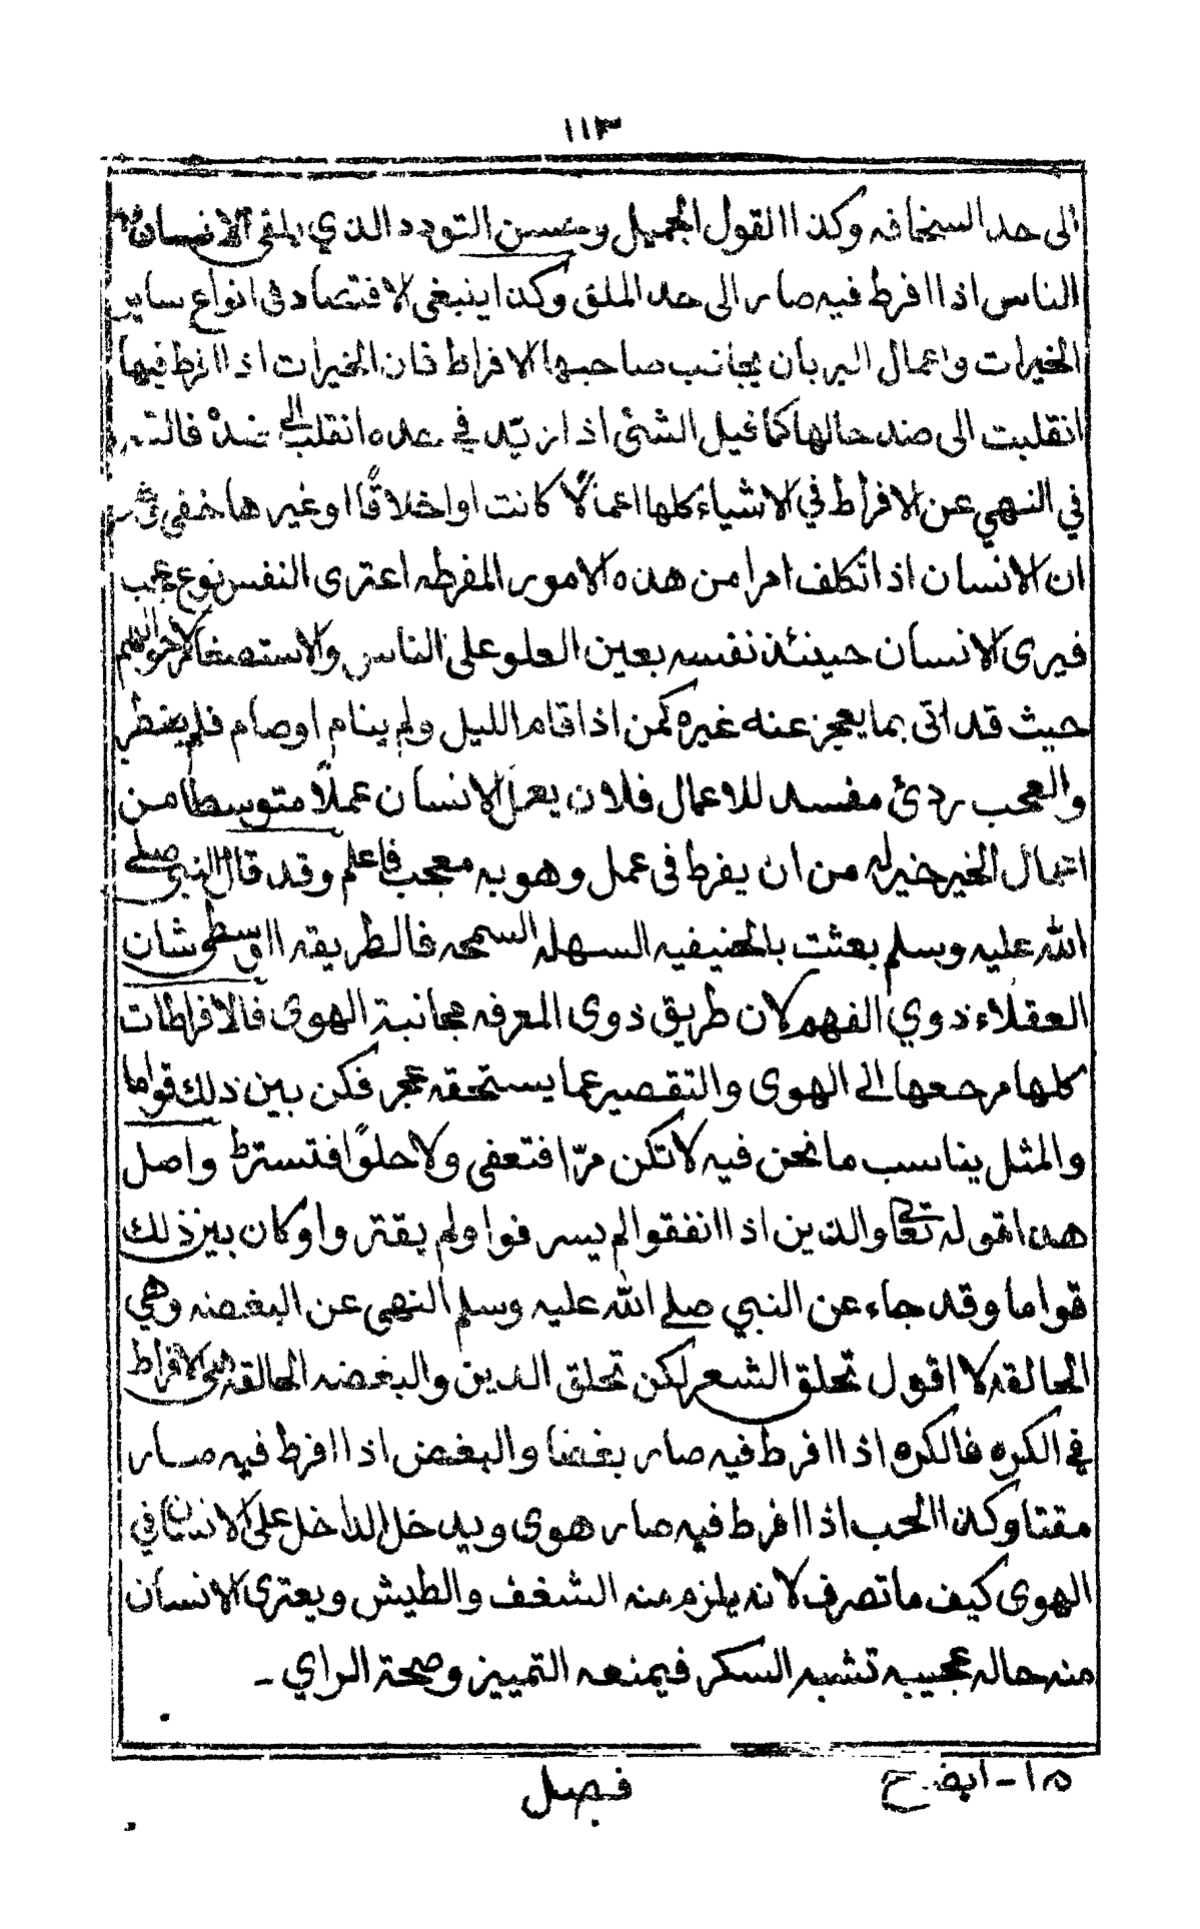 ١١٣
الى حد السخافه وكذا القول الجميل وحسن التودد الذي يلقى الانسان به
الناس اذا افرط فيه صار الى حد الملق وكذا ينبغى الاقتصاد فى انواع ساير
الخيرات واعمال البر بان يجانب صاحبها الافراط فان الخيرات اذا افرط فيها
انقلبت الى ضد حالها كما قيل الشئ اذا زيد في حده انقلب الى ضده فالسر
في النهي عن الافراط في الاشياء كلها اعمالًا كانت او اخلاقًا او غيرها خفى وهو
ان الانسان اذا تكلف امرا من هذه الامور المفرطه اعترى النفس نوع عجب
فيرى الانسان حينئذ نفسه بعين العلو على الناس والاستصغار لاحوالهم
حيث قد اتى بما يعجز عنه غيره كمن اذا قام الليل ولم ينام او صام فلم يفطر
والعجب ردئ مفسد للاعمال فلان يعمل الانسان عملًا متوسطا من
اعمال الخير خير له من ان يفرط فى عمل وهو به معجب فاعلم وقد قال النبى صلے
الله عليه وسلم بعثت بالحنيفيه السهله السمحه فالطريقه الوسطى شان
العقلاء ذوي الفهم لان طريق ذوى المعرفه مجانبة الهوى فالافراطات
كلها مرجعها الى الهوى والتقصير عما يستحقه عجز فكن بين ذلك قواما
والمثل يناسب ما نحن فيه لا تكن مرّا فتعفى ولا حلوًا فتسترط واصل
هذا قوله تعالى والذين اذا انفقوا لم يسرفوا ولم يقتروا وكان بين ذلك
قواما وقد جاء عن النبي صلے الله عليه وسلم النهى عن البغضه وهي
الحالقه لا اقول تحلق الشعر لكن تحلق الدين والبغضه الحالقه هى الافراط
في الكره فالكره اذا افرط فيه صار بغضا والبغض اذا افرط فيه صار
مقتا وكذا الحب اذا افرط فيه صار هوى ويدخل الداخل على الانسان في
الهوى كيف ما تصرف لانه يلزم منه الشغف والطيش ويعترى الانسان
منه حاله عجيبه تشبه السكر فيمنعه التمييز وصحة الراي ـ
١٥ ـ ايضاح
فصل